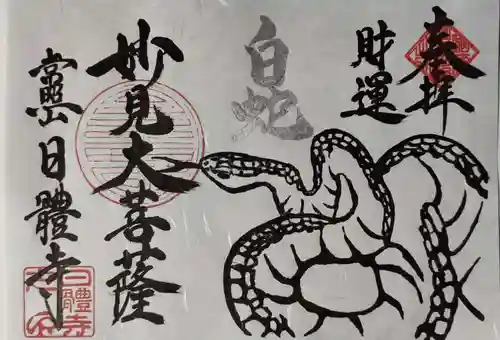 奉拝
財運
白蛇
妙見大菩薩
霊山日體寺
日體寺